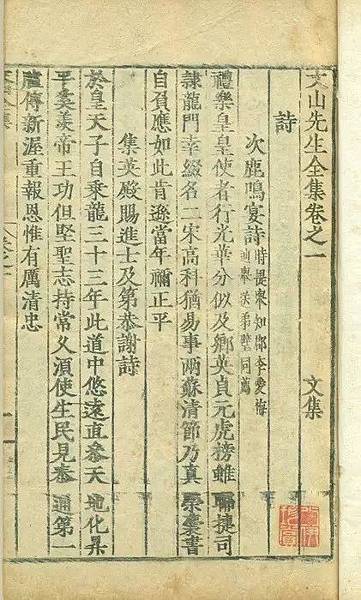 文山先生全集卷之一
文集
詩
次鹿鳴宴詩
禮樂皇皇使者行光華分似及鄉英貞元虎榜雖聯捷司
隸龍門幸綴名二宋高科猶易事兩蘇清節乃真榮囊書
自負應如此肯遜當年禰正平
集英殿賜進士及第恭謝詩
於皇天子自乘龍三十三年此道中悠遠直參天地化昇
平奚羨帝王功但堅聖志持常久須使生民見泰通第一
臚傳新渥重報恩惟有厲清忠